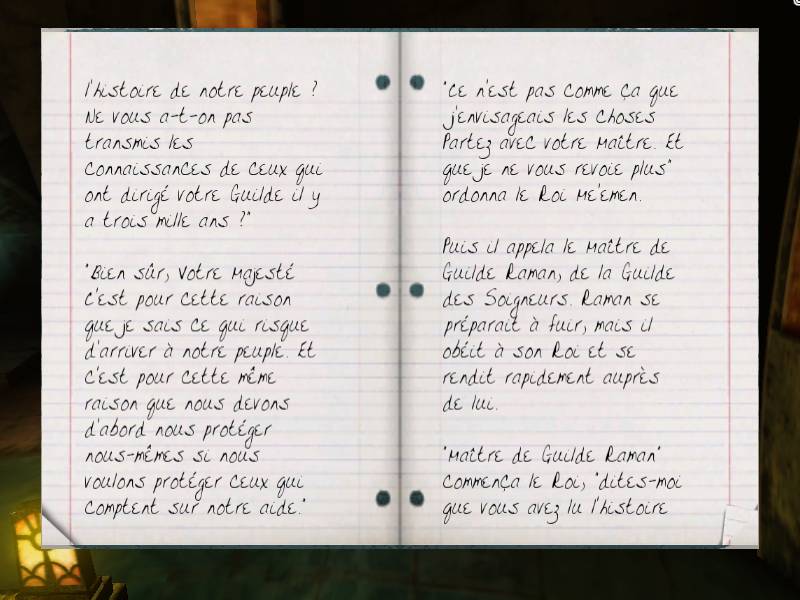 l'histoire de notre peuple ?
Ne vous a-t-on pas
transmis les
connaissances de ceux qui
ont dirigé votre Guilde il y
a trois mille ans ?"
"Bien sûr, Votre Majesté
C'est pour cette raison
que je sais ce qui risque
d'arriver à notre peuple. Et
c'est pour cette même
raison que nous devons
d'abord nous protéger
nous-mêmes si nous
voulons protéger ceux qui
comptent sur notre aide."
"Ce n'est pas comme ça que
j'envisageais les choses
Partez avec votre Maître. Et
que je ne vous revoie plus"
ordonna le Roi Me'emen.
Puis il appela le Maître de
Guilde Raman, de la Guilde
des Soigneurs. Raman se
préparait à fuir, mais il
obéit à son Roi et se
rendit rapidement auprès
de lui.
"Maître de Guilde Raman"
commença le Roi, "dites-moi
que vous avez lu l'histoire